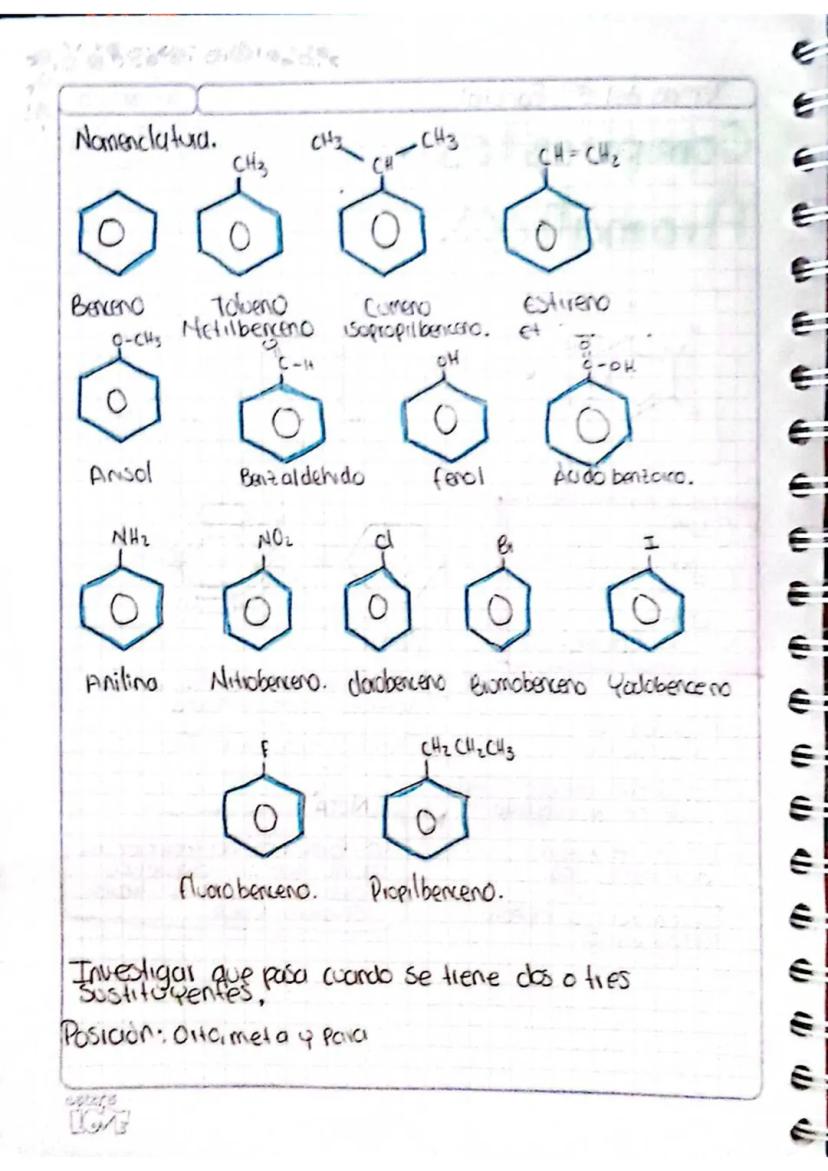 Nomenclatura.
CH3 CH3
CH3 CH CH=CH2
Benceno Tolueno Cumeno Estireno
Metilbenceno isopropilbenceno. et
O-CH3 O O
C-H OH C-OH
Anisol Benzaldehido fenol Ácido benzoico.
NH2 NO2 Cl Br I
Anilina Nitrobenceno. clorobenceno Bromobenceno Yodobenceno
F CH2CH2CH3
fluorobenceno. Propilbenceno.
Investigar que pasa cuando se tiene dos o tres
sustituyentes,
Posición: Orto, meta y para